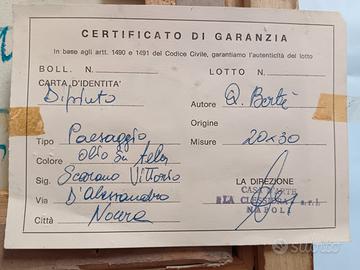 CERTIFICATO DI GARANZIA
In base agli artt. 1490 e 1491 del Codice Civile, garantiamo l'autenticità del lotto
BOLL. N. LOTTO N.
CARTA D'IDENTITA'
Dipinto Autore Q. Bertè
Origine
Tipo Paesaggio Misure 20x30
Colore olio su tela
Sig. Scarano Vittorio LA DIREZIONE
Via D'Alessandro CASA D'ARTE
LA CLESSIDRA s.r.l.
Città Nocera NAPOLI
subito